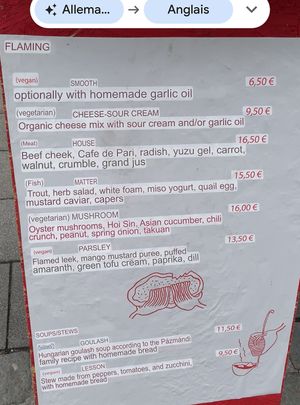 Allema...
→
Anglais
FLAMING
(vegan) SMOOTH 6,50 €
optionally with homemade garlic oil
(vegetarian) CHEESE-SOUR CREAM 9,50 €
Organic cheese mix with sour cream and/or garlic oil
(Meat) HOUSE 16,50 €
Beef cheek, Cafe de Pari, radish, yuzu gel, carrot,
walnut, crumble, grand jus
(Fish) MATTER 15,50 €
Trout, herb salad, white foam, miso yogurt, quail egg,
mustard caviar, capers
(vegetarian) MUSHROOM 16,00 €
Oyster mushrooms, Hoi Sin, Asian cucumber, chili
crunch, peanut, spring onion, takuan
(vegan) PARSLEY 13,50 €
Flamed leek, mango mustard puree, puffed
amaranth, green tofu cream, paprika, dill
SOUPS/STEWS 11,50 €
GOULASH
Hungarian goulash soup according to the Pázmándi
family recipe with homemade bread
(vegan) LESSON 9,50 €
Stew made from peppers, tomatoes, and zucchini,
with homemade bread